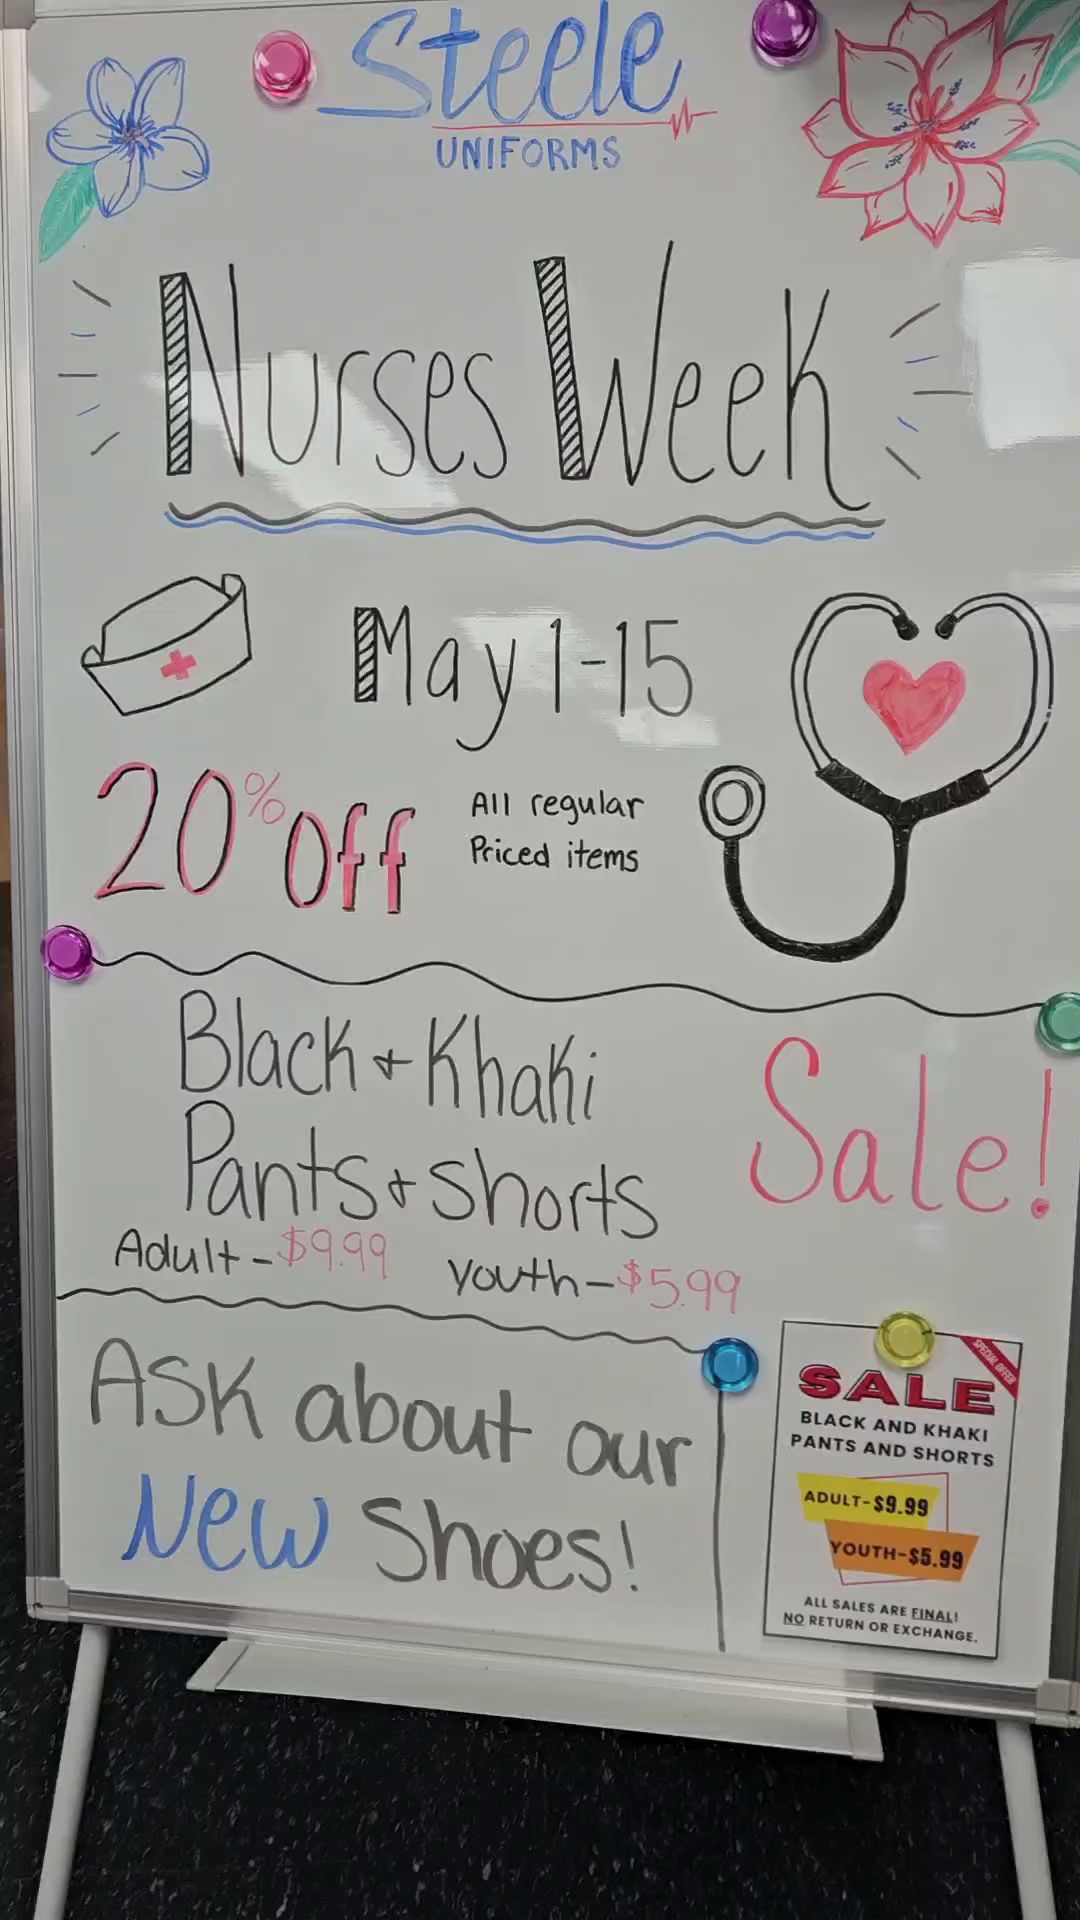 Steele
UNIFORMS
Nurses Week
May 1-15
20% Off
All regular
Priced items
Black + Khaki
Pants + Shorts
Sale!
Adult - $9.99 Youth - $5.99
Ask about our
New Shoes!
SPECIAL OFFER
SALE
BLACK AND KHAKI
PANTS AND SHORTS
ADULT-$9.99
YOUTH-$5.99
ALL SALES ARE FINAL!
NO RETURN OR EXCHANGE.